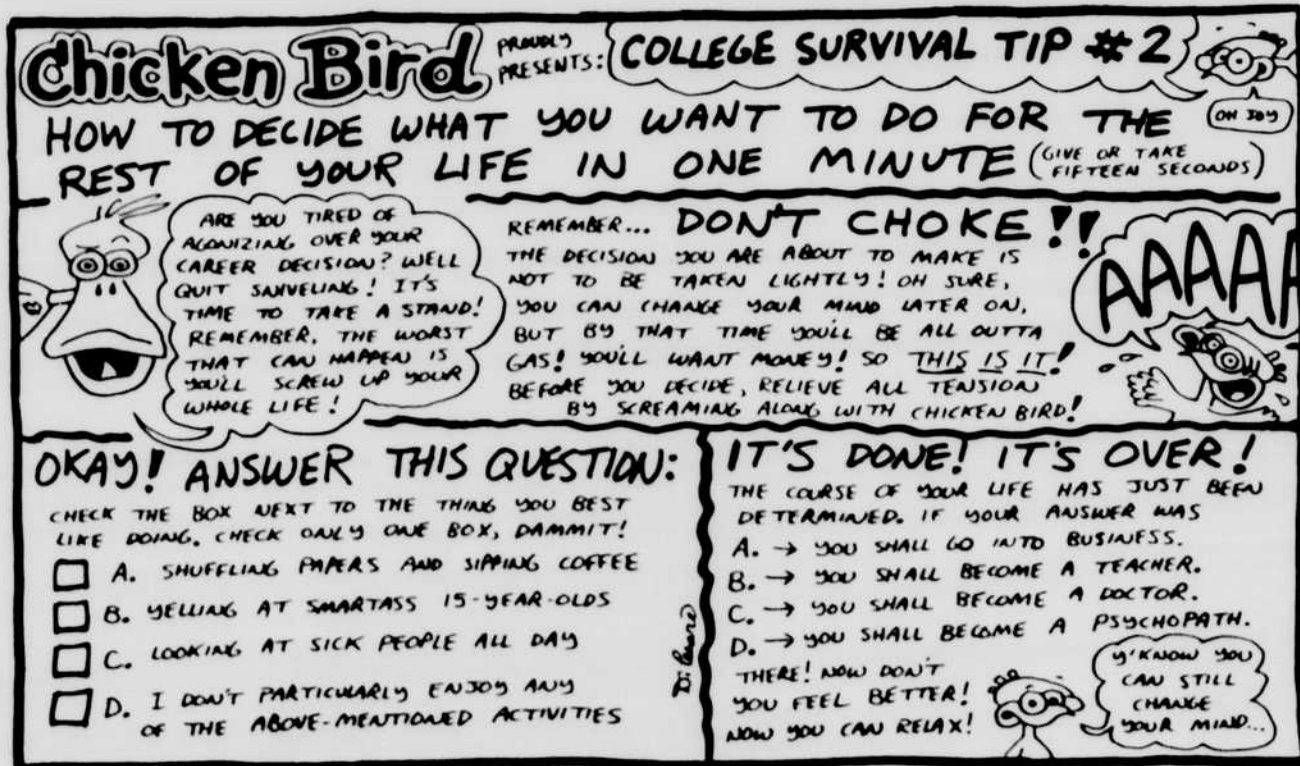 Chicken Bird
PROUDLY
PRESENTS:
COLLEGE SURVIVAL TIP #2
OH JOY
HOW TO DECIDE WHAT YOU WANT TO DO FOR THE
REST OF YOUR LIFE IN ONE MINUTE (GIVE OR TAKE
FIFTEEN SECONDS)
ARE YOU TIRED OF
AGONIZING OVER YOUR
CAREER DECISION? WELL
QUIT SNIVELING! IT'S
TIME TO TAKE A STAND!
REMEMBER, THE WORST
THAT CAN HAPPEN IS
YOU'LL SCREW UP YOUR
WHOLE LIFE!
REMEMBER... DON'T CHOKE!!
THE DECISION YOU ARE ABOUT TO MAKE IS
NOT TO BE TAKEN LIGHTLY! OH SURE,
YOU CAN CHANGE YOUR MIND LATER ON,
BUT BY THAT TIME YOU'LL BE ALL OUTTA
GAS! YOU'LL WANT MONEY! SO THIS IS IT!
BEFORE YOU DECIDE, RELIEVE ALL TENSION
BY SCREAMING ALONG WITH CHICKEN BIRD!
AAAAA
OKAY! ANSWER THIS QUESTION:
CHECK THE BOX NEXT TO THE THING YOU BEST
LIKE DOING. CHECK ONLY ONE BOX, DAMMIT!
A. SHUFFLING PAPERS AND SIPPING COFFEE
B. YELLING AT SMARTASS 15-YEAR-OLDS
C. LOOKING AT SICK PEOPLE ALL DAY
D. I DON'T PARTICULARLY ENJOY ANY
OF THE ABOVE-MENTIONED ACTIVITIES
IT'S DONE! IT'S OVER!
THE COURSE OF YOUR LIFE HAS JUST BEEN
DETERMINED. IF YOUR ANSWER WAS
A. → YOU SHALL GO INTO BUSINESS.
B. → YOU SHALL BECOME A TEACHER.
C. → YOU SHALL BECOME A DOCTOR.
D. → YOU SHALL BECOME A PSYCHOPATH.
THERE! NOW DON'T
YOU FEEL BETTER!
NOW YOU CAN RELAX!
Y'KNOW YOU
CAN STILL
CHANGE
YOUR MIND...